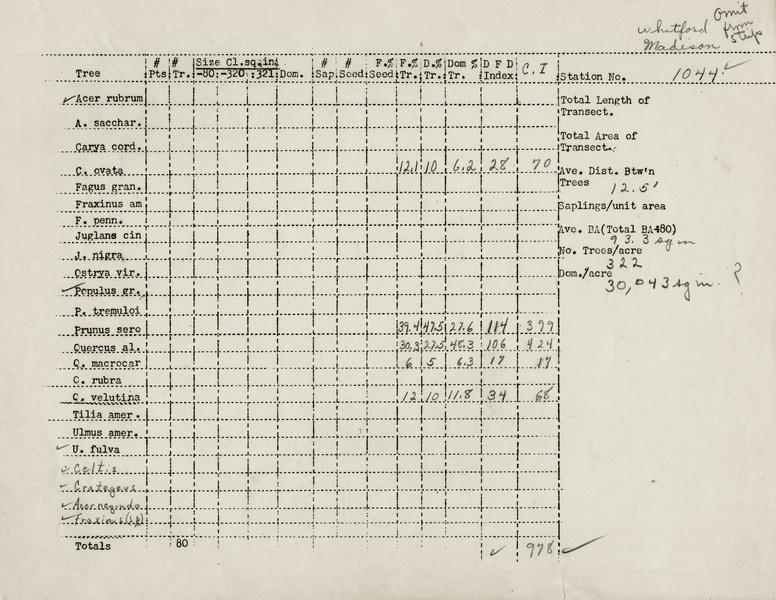 Omit
whitford from
Madison strip
# # Size Cl.sq.in. # # F.% F.% D.% Dom % D F D C. I
Tree Pts Tr. -80 -320 321 Dom. Sap Seed Seed Tr. Tr. Tr. Index Station No. 1044 ✓
✓ Acer rubrum Total Length of
Transect.
A. sacchar.
Total Area of
Carya cord. Transect.
C. ovata 12.1 10 6.2 28 70 Ave. Dist. Btw'n
Fagus gran. Trees 12.5'
Fraxinus am Saplings/unit area
F. penn.
Juglans cin Ave. BA(Total BA÷80)
93.3 sq in
J. nigra No. Trees/acre
322
Ostrya vir. Dom./acre
30,043 sq in. ?
✓ Populus gr.
P. tremuloi
Prunus sero 39.4 47.5 27.6 114 399
Quercus al. 30.3 27.5 48.3 106 424
Q. macrocar 6 5 6.3 17 17
Q. rubra
Q. velutina 12 10 11.8 34 68
Tilia amer.
Ulmus amer.
✓ U. fulva
✓ Celtis
✓ Crategeus
✓ Acer negundo
✓ Fraxinus (sp)
Totals 80 ✓ 978 ✓